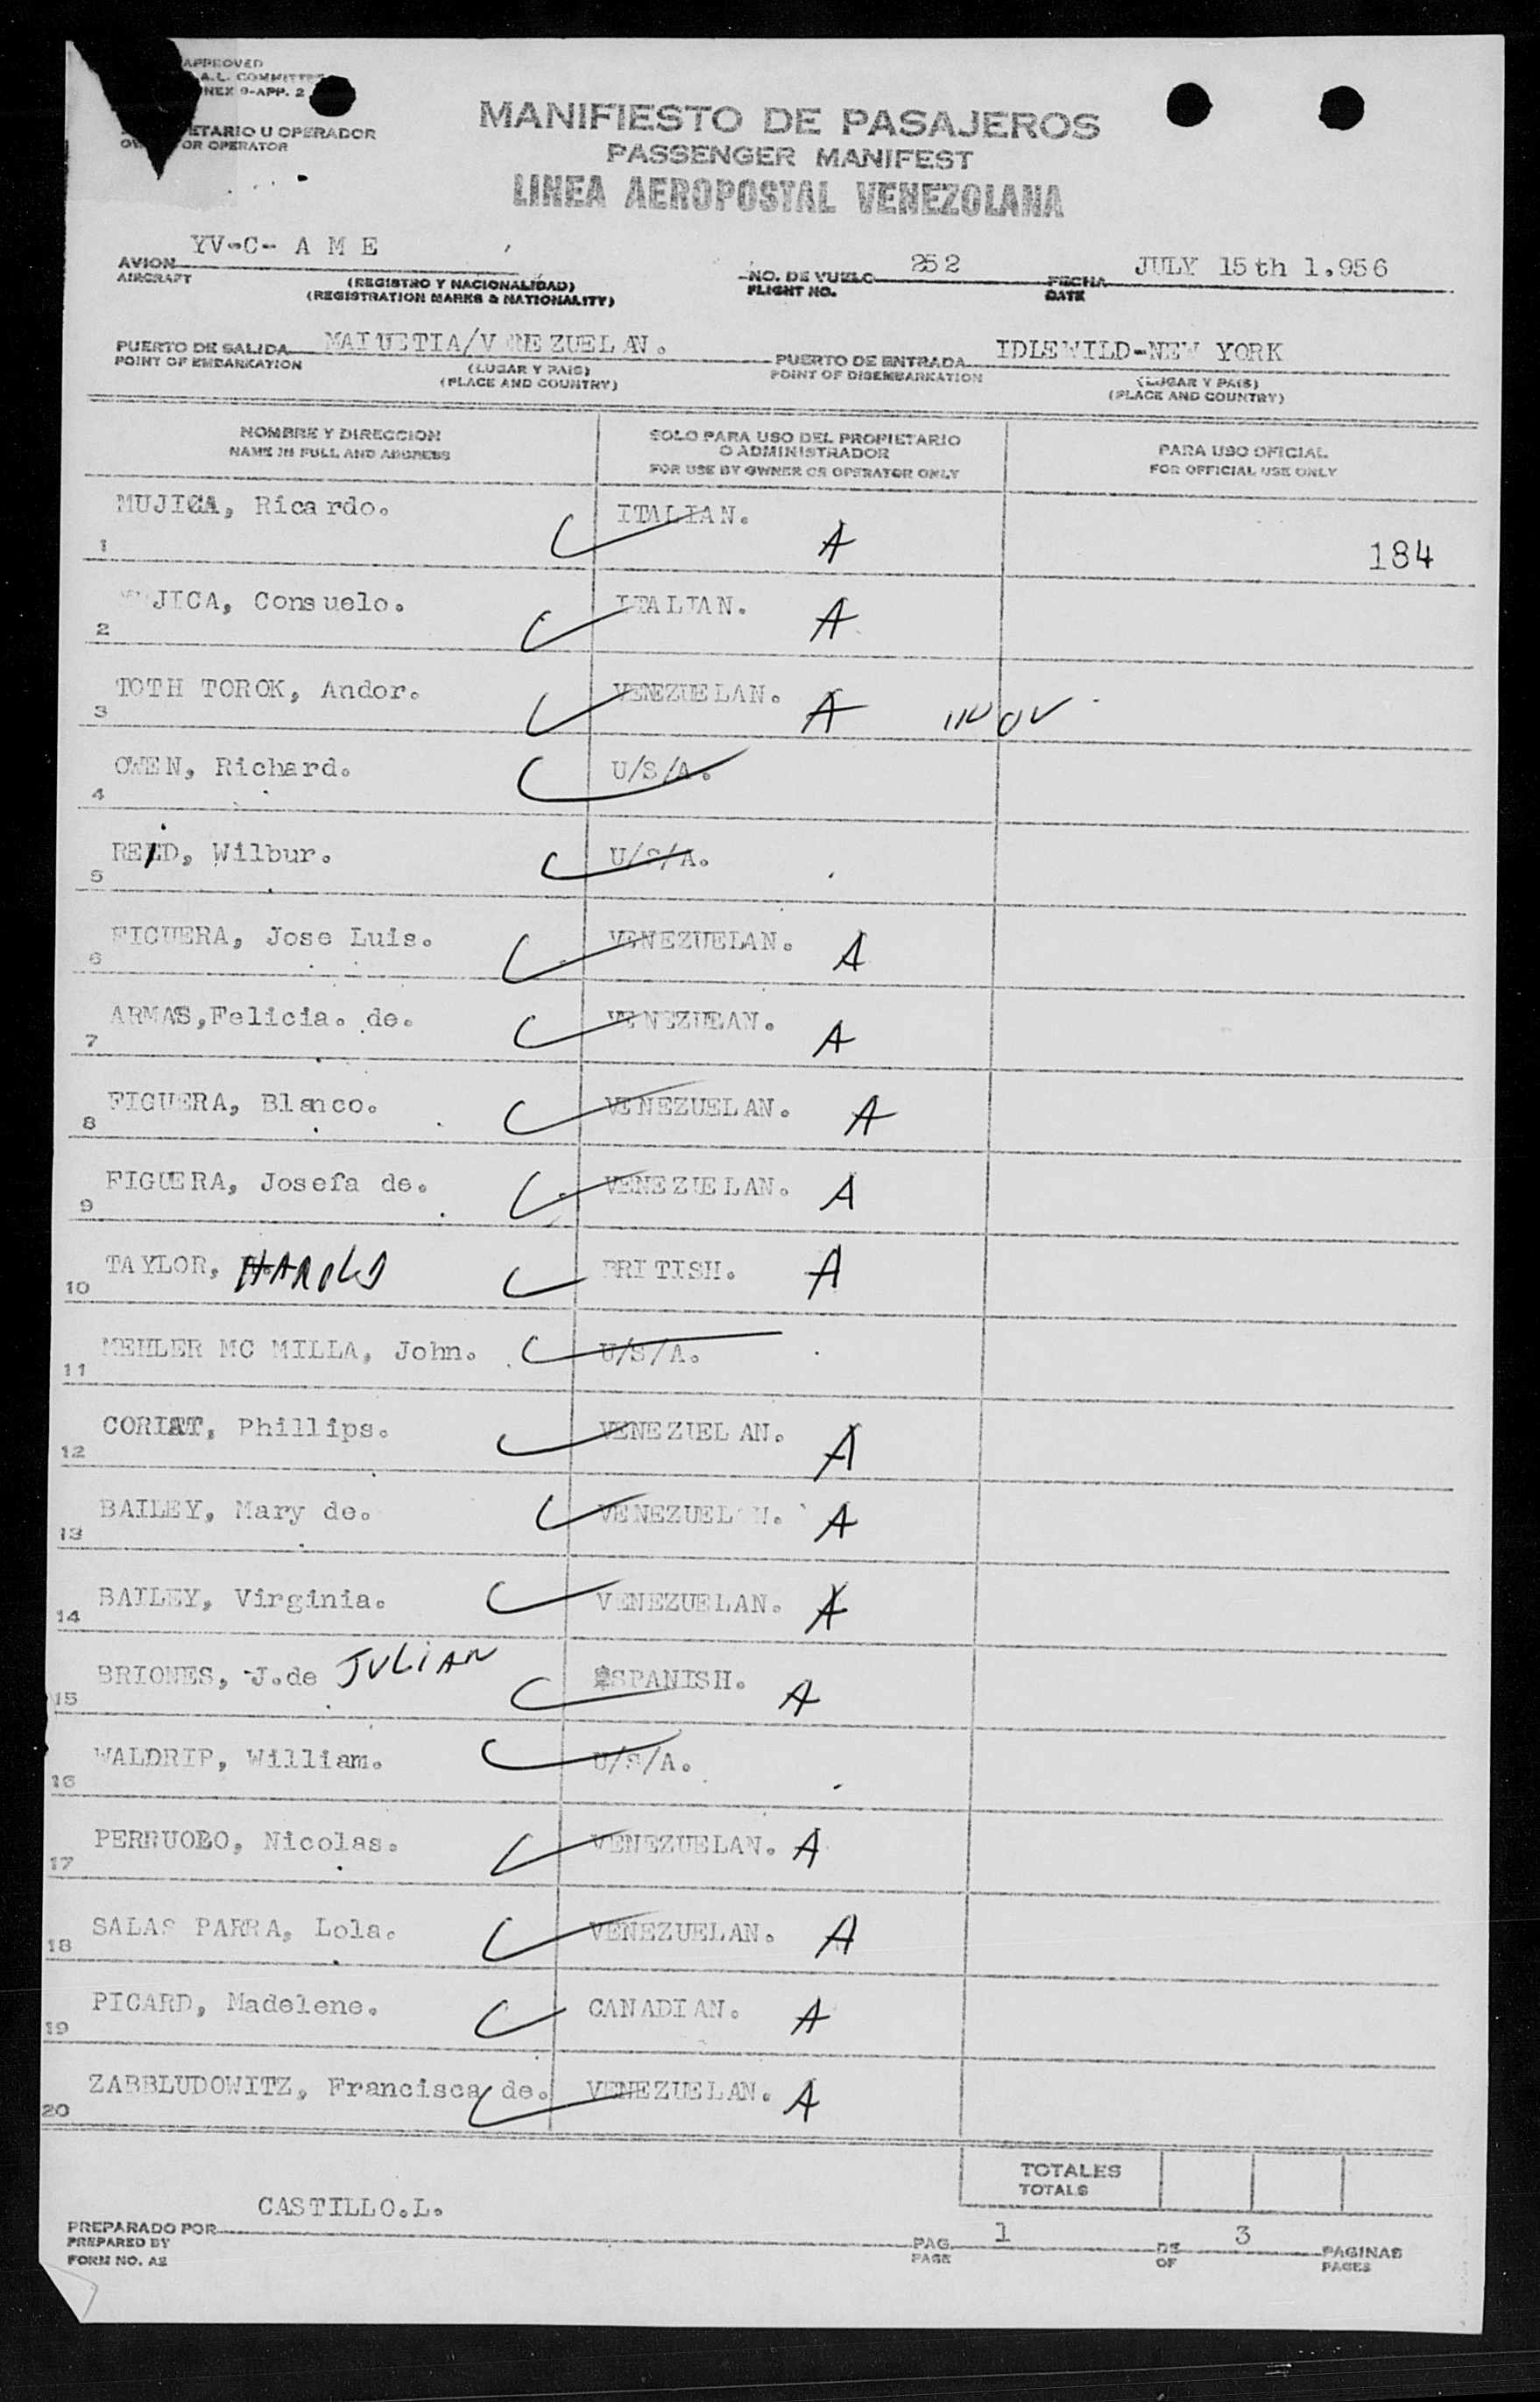 APPROVED
A.L. COMMITTEE
NEX 9-APP. 2
ETARIO U OPERADOR
OR OPERATOR
MANIFIESTO DE PASAJEROS
PASSENGER MANIFEST
LINEA AEROPOSTAL VENEZOLANA
AVION YV-C- A M E NO. DE VUELO 252 FECHA JULY 15th 1.956
AIRCRAFT (REGISTRO Y NACIONALIDAD) FLIGHT NO. DATE
(REGISTRATION MARKS & NATIONALITY)
PUERTO DE SALIDA MAIUETIA/VENEZUELAN. PUERTO DE ENTRADA IDLEWILD-NEW YORK
POINT OF EMBARKATION (LUGAR Y PAIS) POINT OF DISEMBARKATION (LUGAR Y PAIS)
(PLACE AND COUNTRY) (PLACE AND COUNTRY)
NOMBRE Y DIRECCION SOLO PARA USO DEL PROPIETARIO PARA USO OFICIAL
NAME IN FULL AND ADDRESS O ADMINISTRADOR FOR OFFICIAL USE ONLY
FOR USE BY OWNER OR OPERATOR ONLY
1 MUJICA, Ricardo. ITALIAN. A 184
2 MUJICA, Consuelo. ITALIAN. A
3 TOTH TOROK, Andor. VENEZUELAN. A
4 OWEN, Richard. U/S/A.
5 REID, Wilbur. U/S/A.
6 FIGUERA, Jose Luis. VENEZUELAN. A
7 ARMAS,Felicia. de. VENEZUELAN. A
8 FIGUERA, Blanco. VENEZUELAN. A
9 FIGUERA, Josefa de. VENEZUELAN. A
10 TAYLOR, HAROLD BRITISH. A
11 MEHLER MC MILLA, John. U/S/A.
12 CORIAT, Phillips. VENEZUELAN. A
13 BAILEY, Mary de. VENEZUELAN. A
14 BAILEY, Virginia. VENEZUELAN. A
15 BRIONES, J.de JULIAN SPANISH. A
16 WALDRIP, William. U/S/A.
17 PERRUOLO, Nicolas. VENEZUELAN. A
18 SALAS PARRA, Lola. VENEZUELAN. A
19 PICARD, Madelene. CANADIAN. A
20 ZABBLUDOWITZ, Francisca de. VENEZUELAN. A
TOTALES
TOTALS
PREPARADO POR CASTILLO.L. PAG. 1 DE 3 PAGINAS
PREPARED BY PAGE OF PAGES
FORM NO. A2